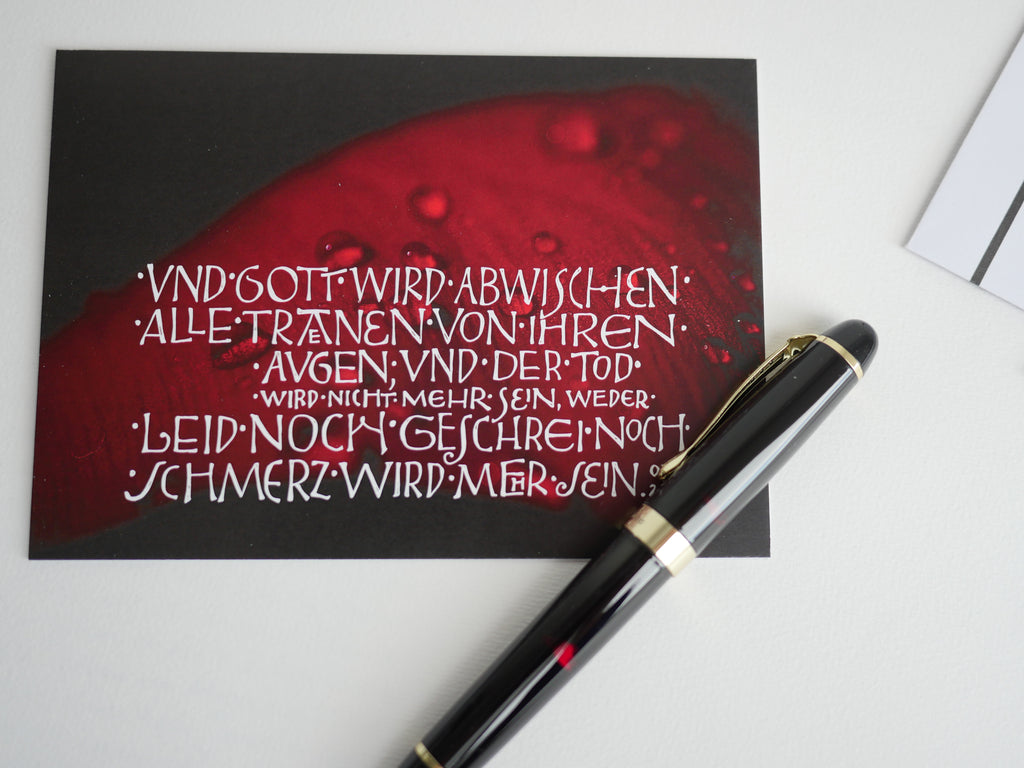 ·VND·GOTT·WIRD·ABWISCHEN·
·ALLE·TRÆNEN·VON·IHREN·
·AVGEN; VND·DER·TOD·
·WIRD·NICHT·MEHR·SEIN, WEDER·
·LEID·NOCH·GESCHREI·NOCH·
·SCHMERZ·WIRD·MEHR·SEIN.